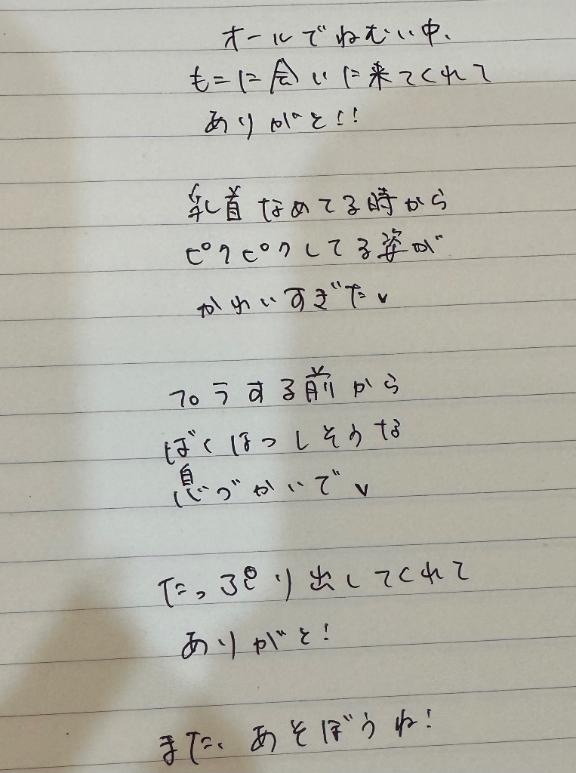 オールでねむい中、
もーに会いに来てくれて
ありがと!!
乳首なめてる時から
ピクピクしてる姿が
かわいすぎた
フロラする前から
ばくはつしそうな
息づかいで
たっぷり出してくれて
ありがと!
また、あそぼうね!